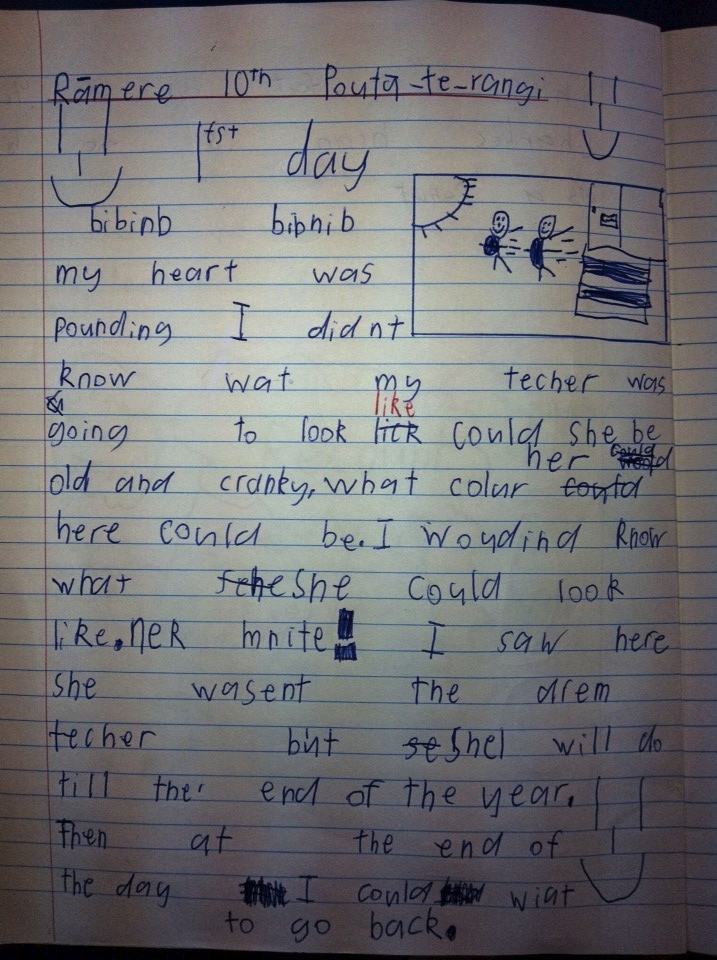 Rāmere 10th Pouta-te-rangi
1st day
bibinb bibnib
my heart was
pounding I didnt
know wat my techer was
like
going to look lick could she be
her could
old and cranky, what colur could
here could be. I woudind know
what sche She could look
like. neK mnite! I saw here
she wasent the drem
techer but se Shel will do
till the end of the year.
Then at the end of
the day I could wiat
to go back.